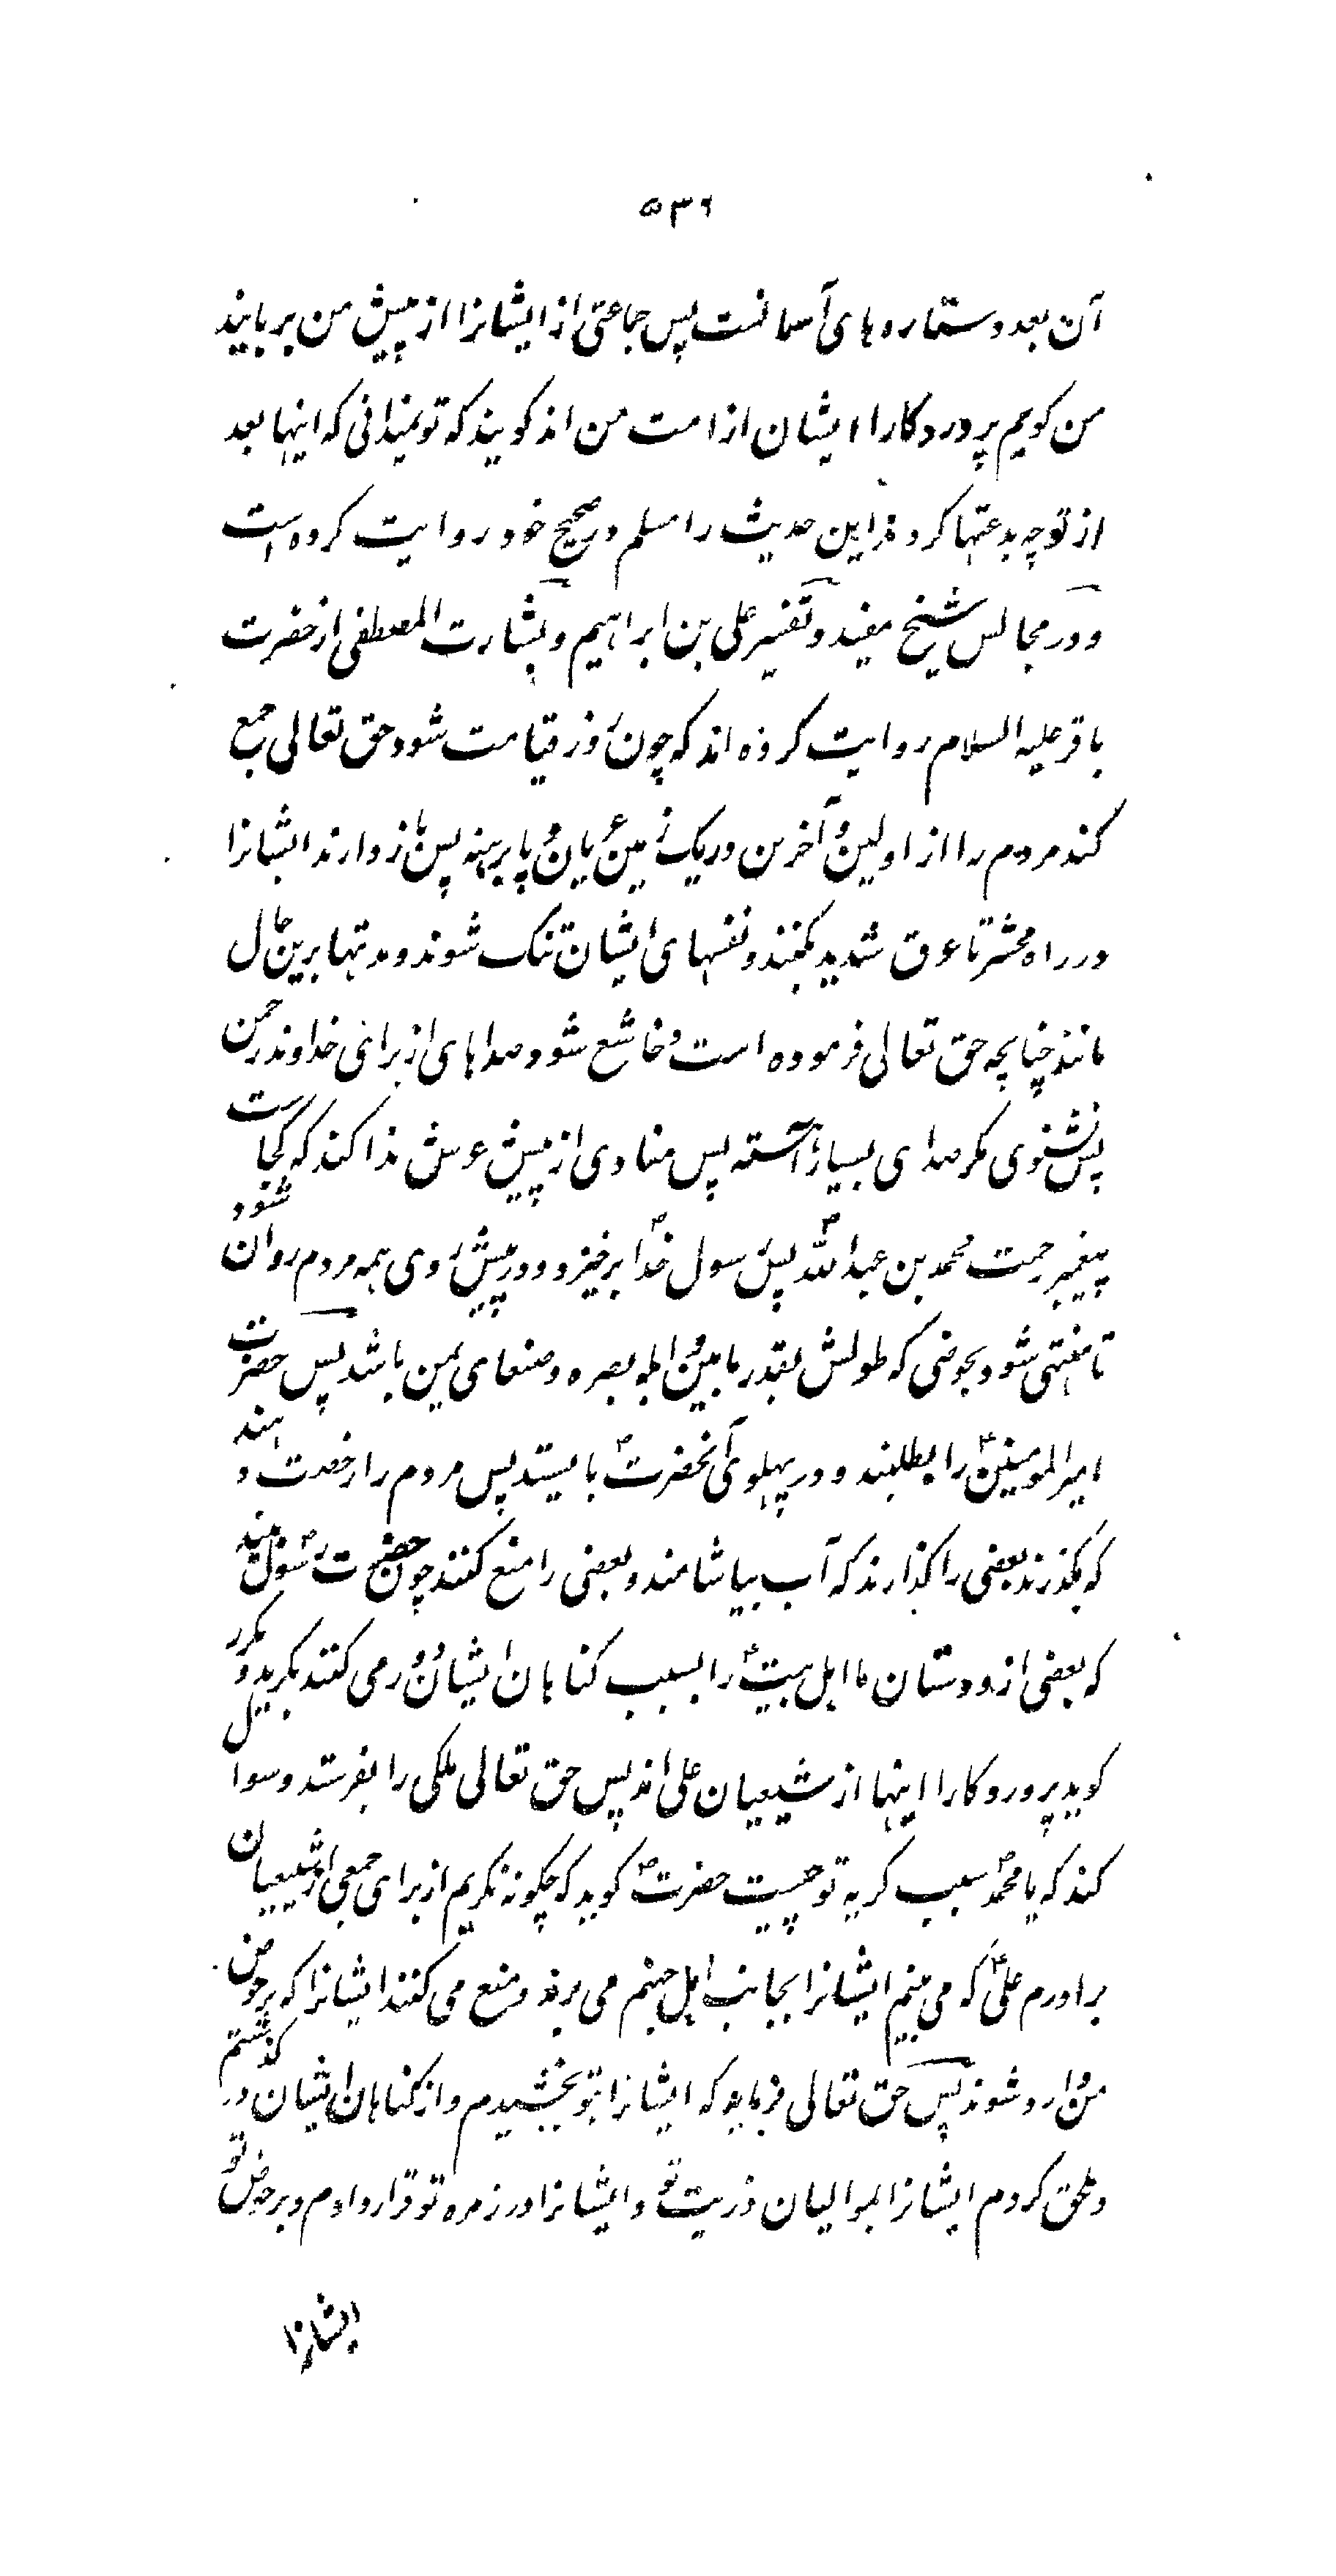 ۵۳۶
آن بعدد ستاره های آسمانست پس جماعتی از ایشانرا از پیش من بربایند
من کویم پروردکارا ایشان از امت من اند کویند که تو نمیدانی که اینها بعد
از تو چه بدعتها کردند این حدیث را مسلم در صحیح خود روایت کرده است
و در مجالس شیخ مفید و تفسیر علی بن ابراهیم و بشارت المصطفی از حضرت
باقر علیه السلام روایت کرده اند که چون روز قیامت شود حق تعالی جمع
کند مردم را از اولین و آخرین در یک زمین عریان و پا برهنه پس باز دارند ایشانرا
در راه محشر تا عرق شدید بکنند و نفسهای ایشان تنک شوند و مدتها برین حال
مانند چنانچه حق تعالی فرموده است و خاشع شود صداهای از برای خداوند رحمن
پس نشنوی مکر صدای بسیار آهسته پس منادی از پیش عرش ندا کند که کجاست
پیغمبر رحمت محمد بن عبد اللهؐ پس رسول خداؐ برخیزد و در پیش روی همه مردم روان شود
تا منتهی شود بحوضی که طولش بقدر ما بین ابله بصره و صنعای یمن باشد پس حضرت
امیر المومنینؑ را بطلبند و در پهلوی آنحضرتؐ بایستد پس مردم را رخصت دهند
که بکذرند بعضی را بکذارند که آب بیاشامند و بعضی را منع کنند چون حضرت رسولؐ بیند
که بعضی از دوستان ما اهل بیتؑ را بسبب کناهان ایشان دور می کنند بکرید و مکرر
کوید پروردکارا اینها از شیعیان علی اند پس حق تعالی ملکی را بفرستد و سوال
کند که یا محمدؐ سبب کریه تو چیست حضرتؐ کوید که چکونه نکریم از برای جمعی از شیعیان
برادرم علیؑ که می بینم ایشانرا بجانب اهل جهنم می برند و منع می کنند ایشانرا که بر حوض
من وارد شوند پس حق تعالی فرماید که ایشانرا بتو بخشیدم و از کناهان ایشان در کذشتم
و ملحق کردم ایشانرا بموالیان ذریت تو و ایشانرا در زمره تو قرار دادم و بر حوض تو
ایشانرا